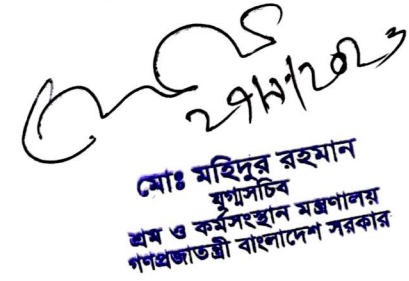 মোঃ মহিদুর রহমান
যুগ্মসচিব
শ্রম ও কর্মসংস্থান মন্ত্রণালয়
গণপ্রজাতন্ত্রী বাংলাদেশ সরকার